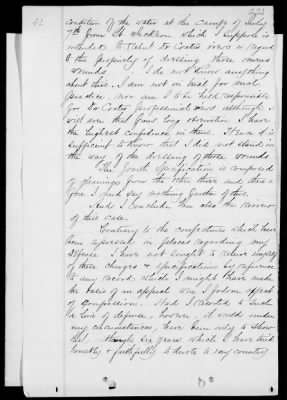 42
condition of the water at the camp of July
7th from Lt Jackson which I suppose is
intended to rebut Dr Coates views in regard
to the propriety of dressing those mens
wounds. I do not know anything
about this. I am not on trial for mal-
practice nor am I to be held responsible
for Dr Coates professional views although I
will own that from long observation I have
the highest confidence in them. Hence it is
sufficient to know that I did not stand in
the way of the dressing of those wounds
The fourth Specification is composed
of gleanings from the other three and there-
fore I need say nothing further of this.
And I conclude thus also the review
of this case.
Contrary to the conjectures which have
been expressed in places regarding my
defense I have not sought to relieve myself
of these charges & specifications by reference
to any record which I might have made
the basis of an appeal was I forlorn
of compassion. Had I resorted to such
a line of defense, however, it would under
my circumstances, have been only to show
that through six years which I have tried
honestly & faithfully to devote to my country